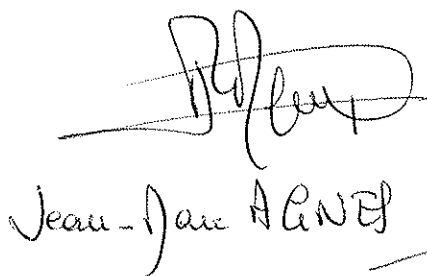 Jean-Marc AGNES